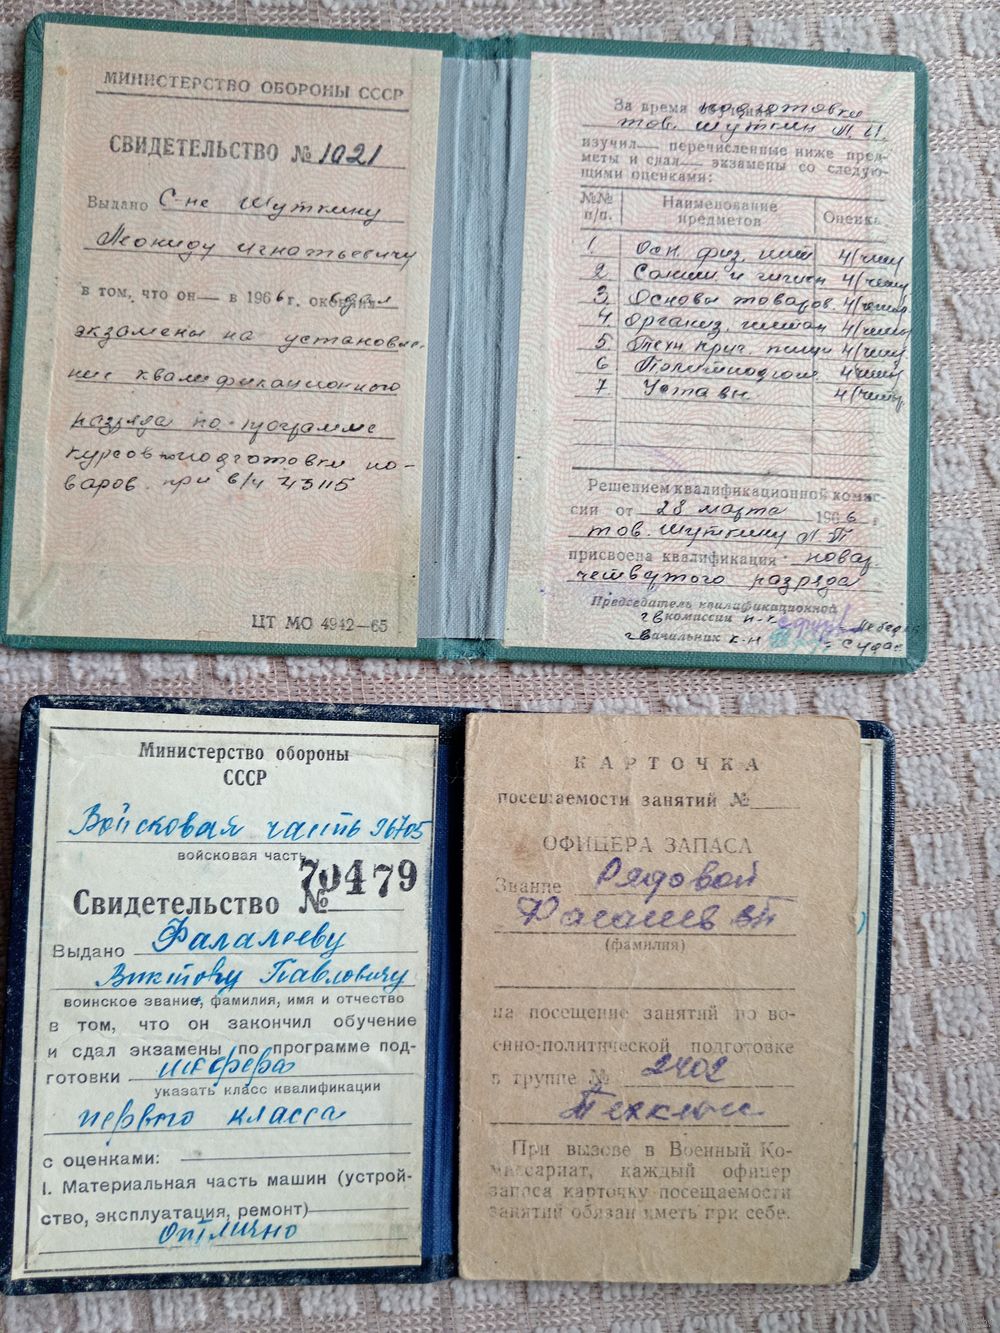 МИНИСТЕРСТВО ОБОРОНЫ СССР
СВИДЕТЕЛЬСТВО № 1021
Выдано С-не Шуткину
Леониду Игнатьевичу
в том, что он в 1966 г. сдал
экзамены на установле-
ние квалификационного
разряда по программе
курсов подготовки по-
варов при в/ч 43115
ЦТ МО 4942—65
За время подготовки
тов. Шуткин Л. И.
изучил перечисленные ниже пред-
меты и сдал экзамены со следую-
щими оценками:
№№ п/п. Наименование предметов Оценка
1. Осн. физ. пит 4/
2 Санит. и гигиен 4/
3. Основы товаров. 4/
4. Организ. питан 4/
5 Техн приг. пищи 4/
6 Политподгот. 4/
7. Уставы 4/
Решением квалификационной комис-
сии от 28 марта 1966 г.
тов. Шуткину Л
присвоена квалификация повар
четвертого разряда
Председатель квалификационной
комиссии
Начальник
Министерство обороны
СССР
Войсковая часть 96705
войсковая часть
70479
Свидетельство №
Выдано Фалалееву
Виктору Павловичу
воинское звание, фамилия, имя и отчество
в том, что он закончил обучение
и сдал экзамены по программе под-
готовки шофера
указать класс квалификации
первого класса
с оценками:
I. Материальная часть машин (устрой-
ство, эксплуатация, ремонт)
отлично
КАРТОЧКА
посещаемости занятий №
ОФИЦЕРА ЗАПАСА
Звание Рядовой
Фалалеев ВП
(фамилия)
на посещение занятий по во-
енно-политической подготовке
в группе № 2402
Техкласс
При вызове в Военный Ко-
миссариат, каждый офицер
запаса карточку посещаемости
занятий обязан иметь при себе.